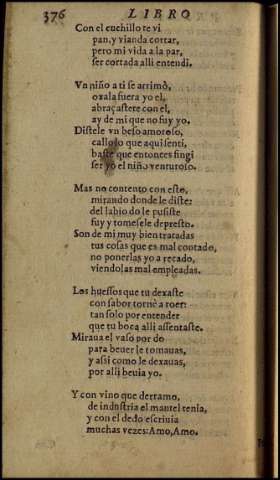 376 LIBRO
Con el cuchillo te vi
pan, y vianda cortar,
pero mi vida a la par,
ser cortada alli entendi.
Vn niño a ti se arrimò,
oxala fuera yo el,
abraçastete con el,
ay de mi que no fuy yo.
Distele vn beso amoroso,
callolo que aqui senti,
baste que entonces fingi
ser yo el niño venturoso.
Mas no contento con esto,
mirando donde le diste:
del labio do le pusiste
fuy y tomesele de presto.
Son de mi muy bien tratadas
tus cosas que es mal contado,
no ponerlas yo a recado,
viendolas mal empleadas.
Los huessos que tu dexaste
con sabor tornè a roer:
tan solo por entender
que tu boca alli assentaste.
Miraua el vaso por do
para beuer le tomauas,
y assi como le dexauas,
por alli beuia yo.
Y con vino que derramo,
de industria el mantel tenia,
y con el dedo escriuia
muchas vezes: Amo, Amo.